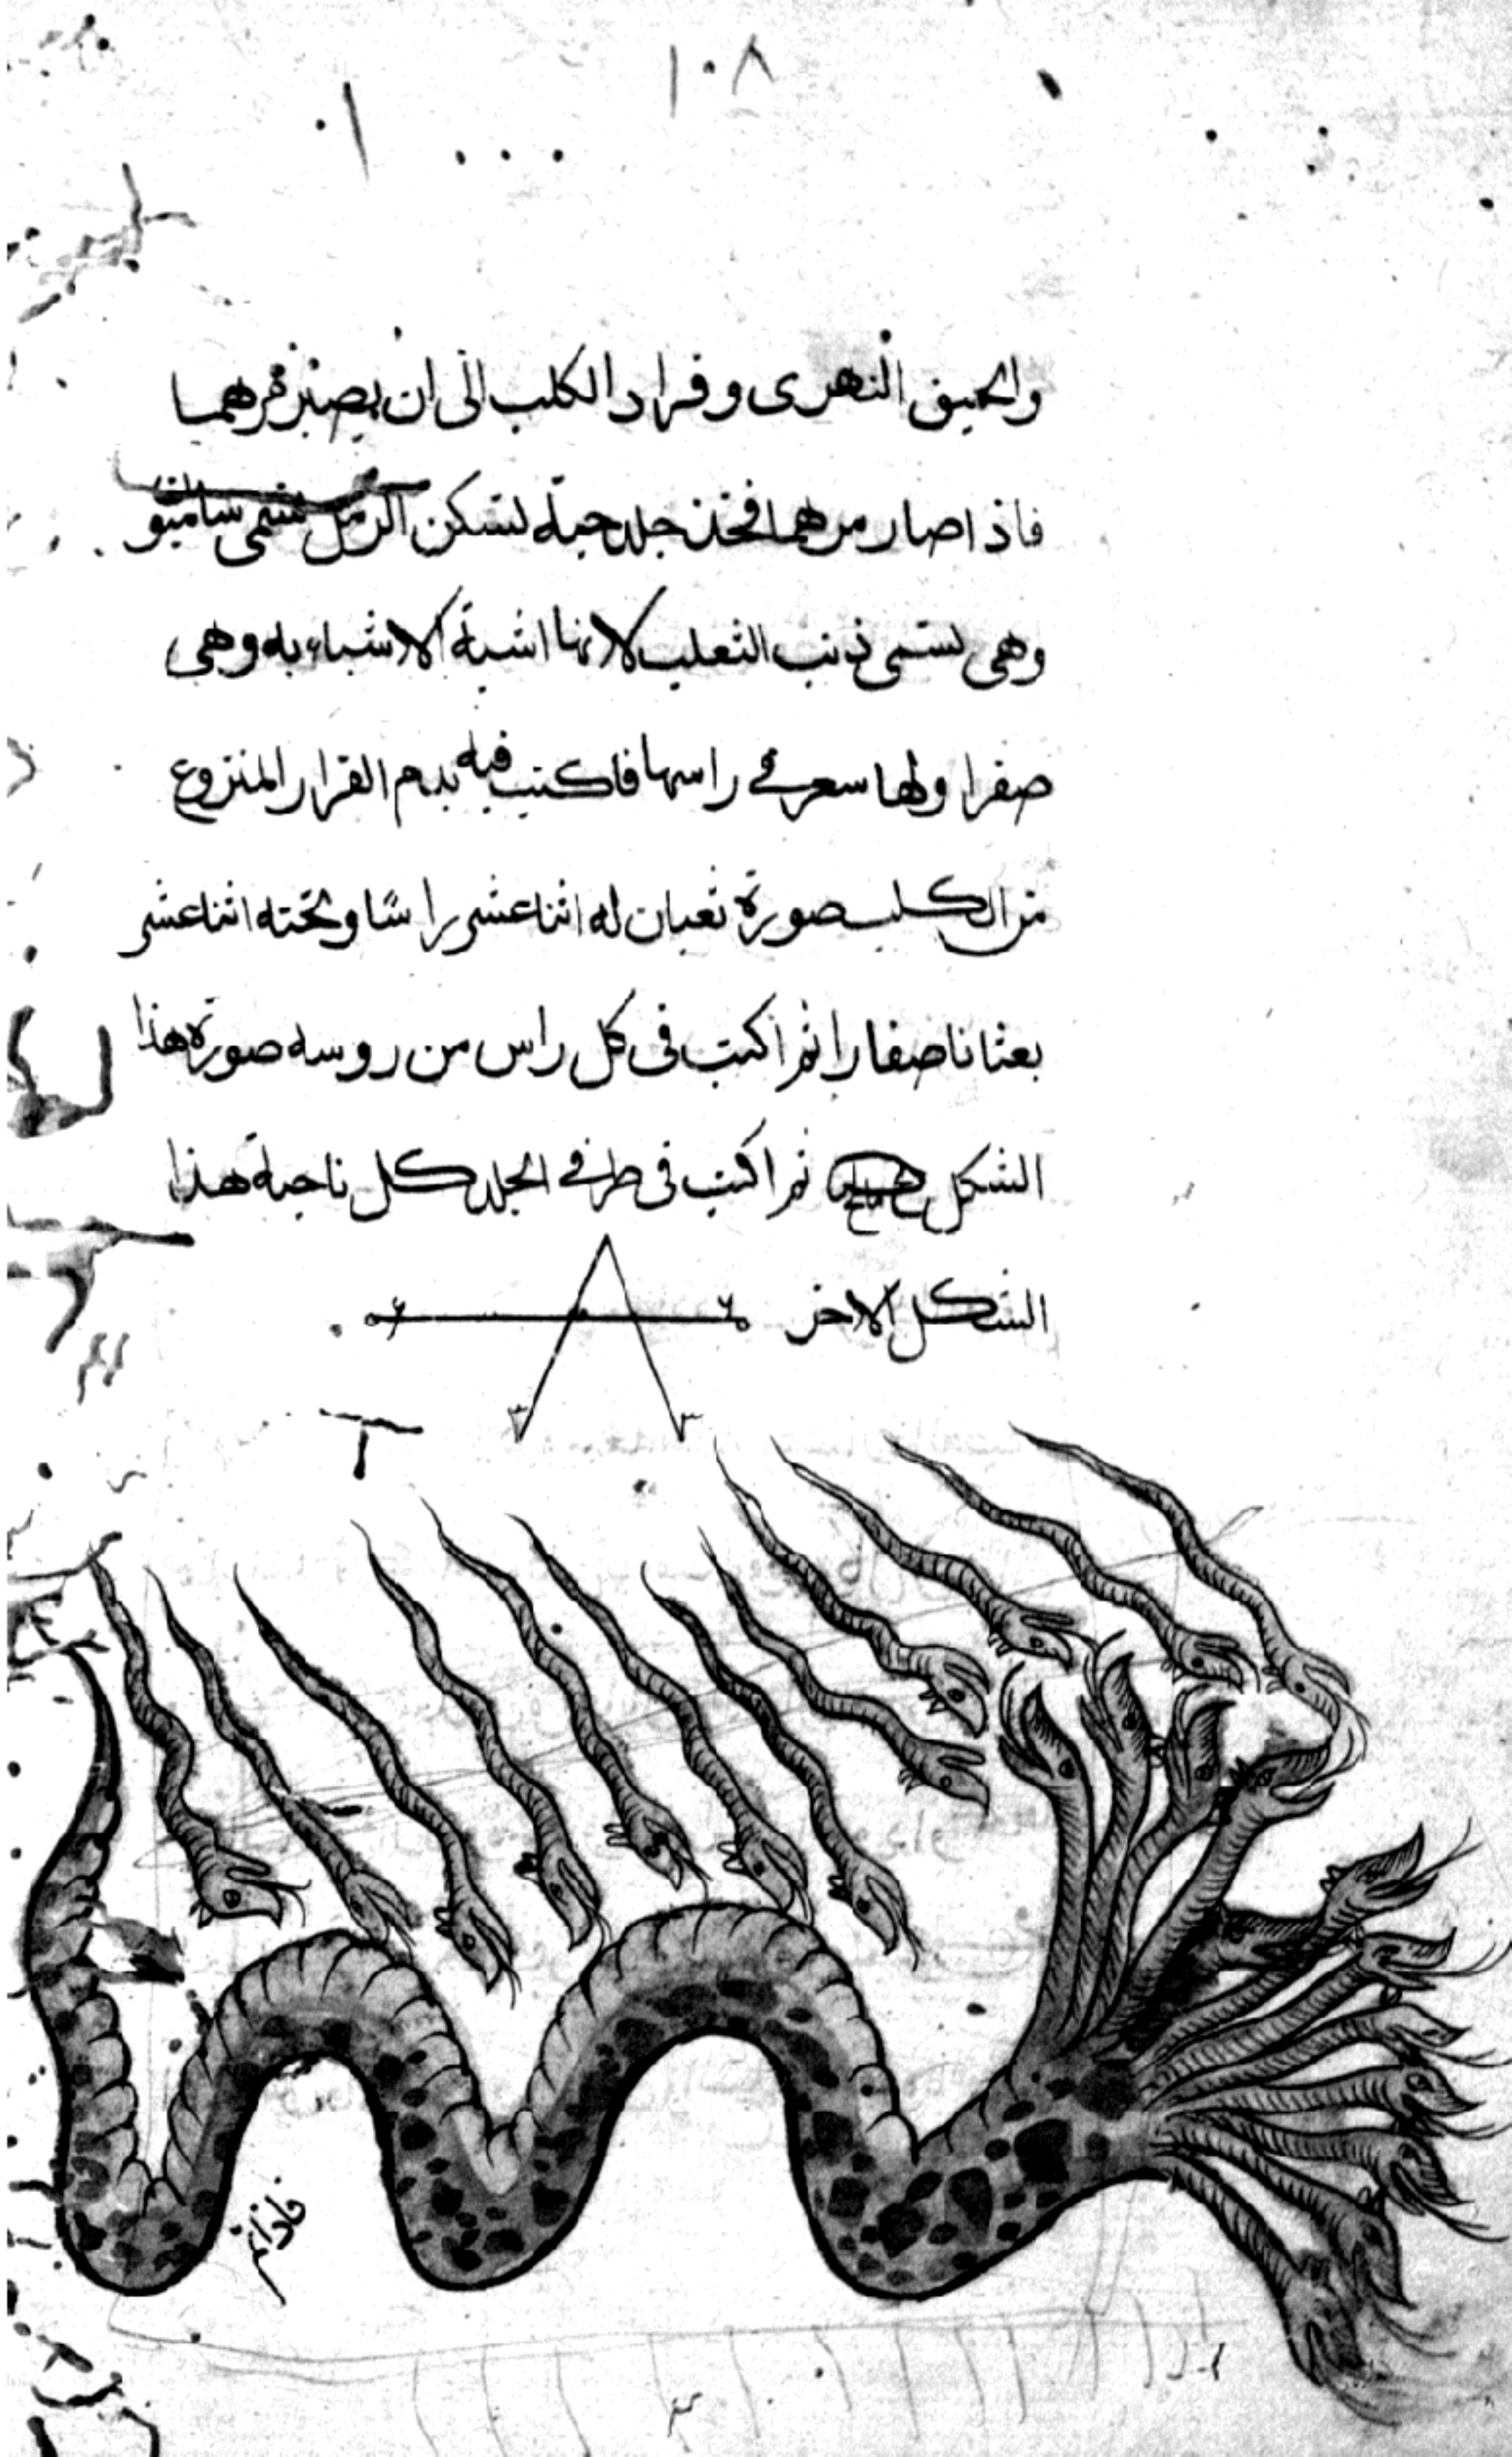 ١٠٨
والحبق النهرى وقراد الكلب الى ان يصير مرهما
فاذا صار مرهما فخذ جلد حية تسكن الرمل تسمى
وهى تسمى ذنب الثعلب لانها اشبه الاشياء به وهى
صفرا ولها سعر فى راسها فاكتب فيه بدم القراد المنزوع
من الكلب صورة ثعبان له اثنا عشر راسًا وتحته اثنا عشر
بعثانا صغارا ثم اكتب فى كل راس من روسه صورة هذا
الشكل ثم اكتب فى طرفى الجلد كل ناحية هذا
الشكل الاخر
فاذا تم